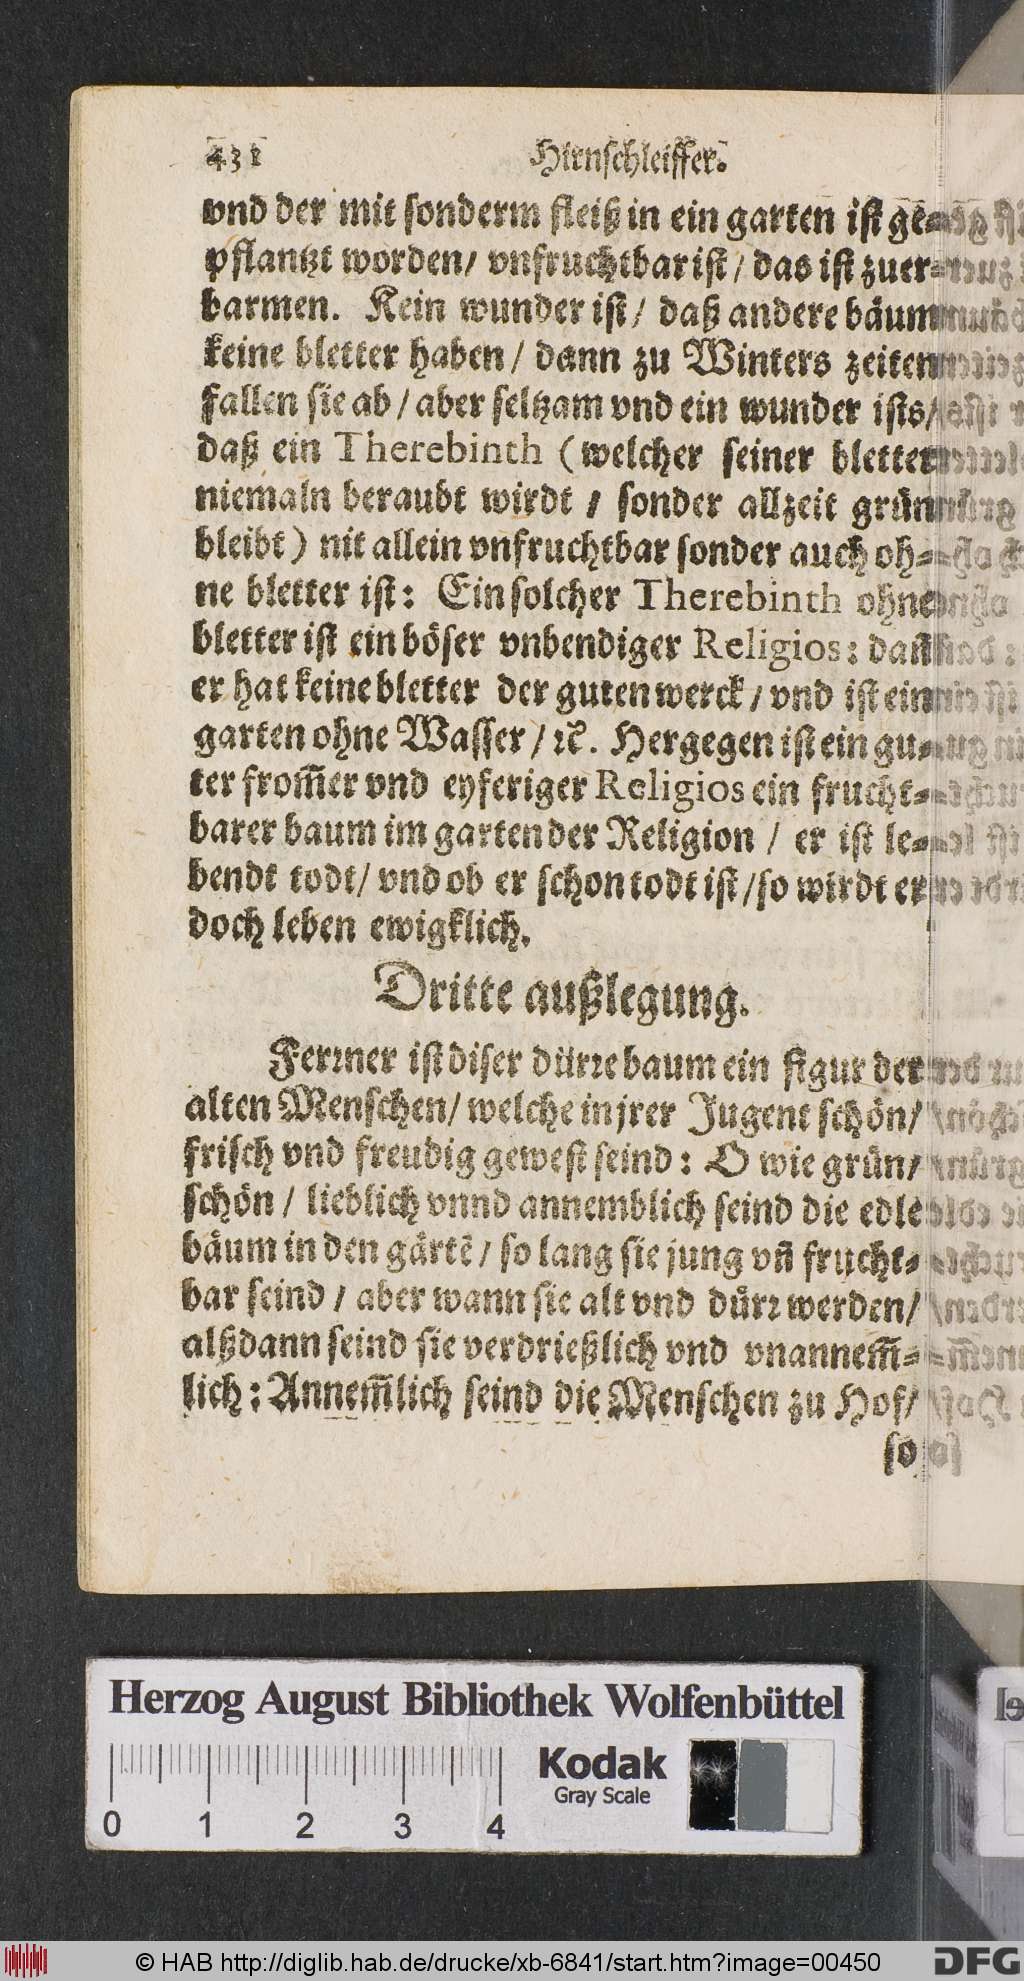 431 Hirnschleiffer.
vnd der mit sonderm fleiß in ein garten ist ge-
pflantzt worden/ vnfruchtbar ist/ das ist zuer-
barmen. Kein wunder ist/ daß andere bäum
keine bletter haben/ dann zu Winters zeiten
fallen sie ab/ aber seltzam vnd ein wunder ists/
daß ein Therebinth (welcher seiner bletter
niemaln beraubt wirdt/ sonder allzeit grün
bleibt) nit allein vnfruchtbar sonder auch oh-
ne bletter ist: Ein solcher Therebinth ohne
bletter ist ein böser vnbendiger Religios: dañ
er hat keine bletter der guten werck/ vnd ist ein
garten ohne Wasser/ ꝛc. Hergegen ist ein gu-
ter from̃er vnd eyferiger Religios ein frucht-
barer baum im garten der Religion/ er ist le-
bendt todt/ vnd ob er schon todt ist/ so wirdt er
doch leben ewigklich.
Dritte außlegung.
Ferrner ist diser dürre baum ein figur der
alten Menschen/ welche in jrer Jugent schön/
frisch vnd freudig gewest seind: O wie grün/
schön/ lieblich vnnd annemblich seind die edle
bäum in den gärtẽ/ so lang sie jung vñ frucht-
bar seind/ aber wann sie alt vnd dürr werden/
alßdann seind sie verdrießlich vnd vnannem̃-
lich: Annem̃lich seind die Menschen zu Hof/
so
Herzog August Bibliothek Wolfenbüttel
Kodak
Gray Scale
0 1 2 3 4
© HAB http://diglib.hab.de/drucke/xb-6841/start.htm?image=00450
DFG